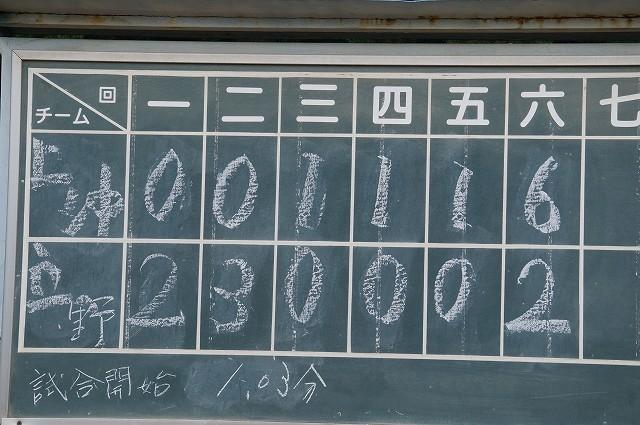 チーム 回 一 二 三 四 五 六 七
上沖 0 0 1 1 1 6
立野 2 3 0 0 0 2
試合開始 1.03分